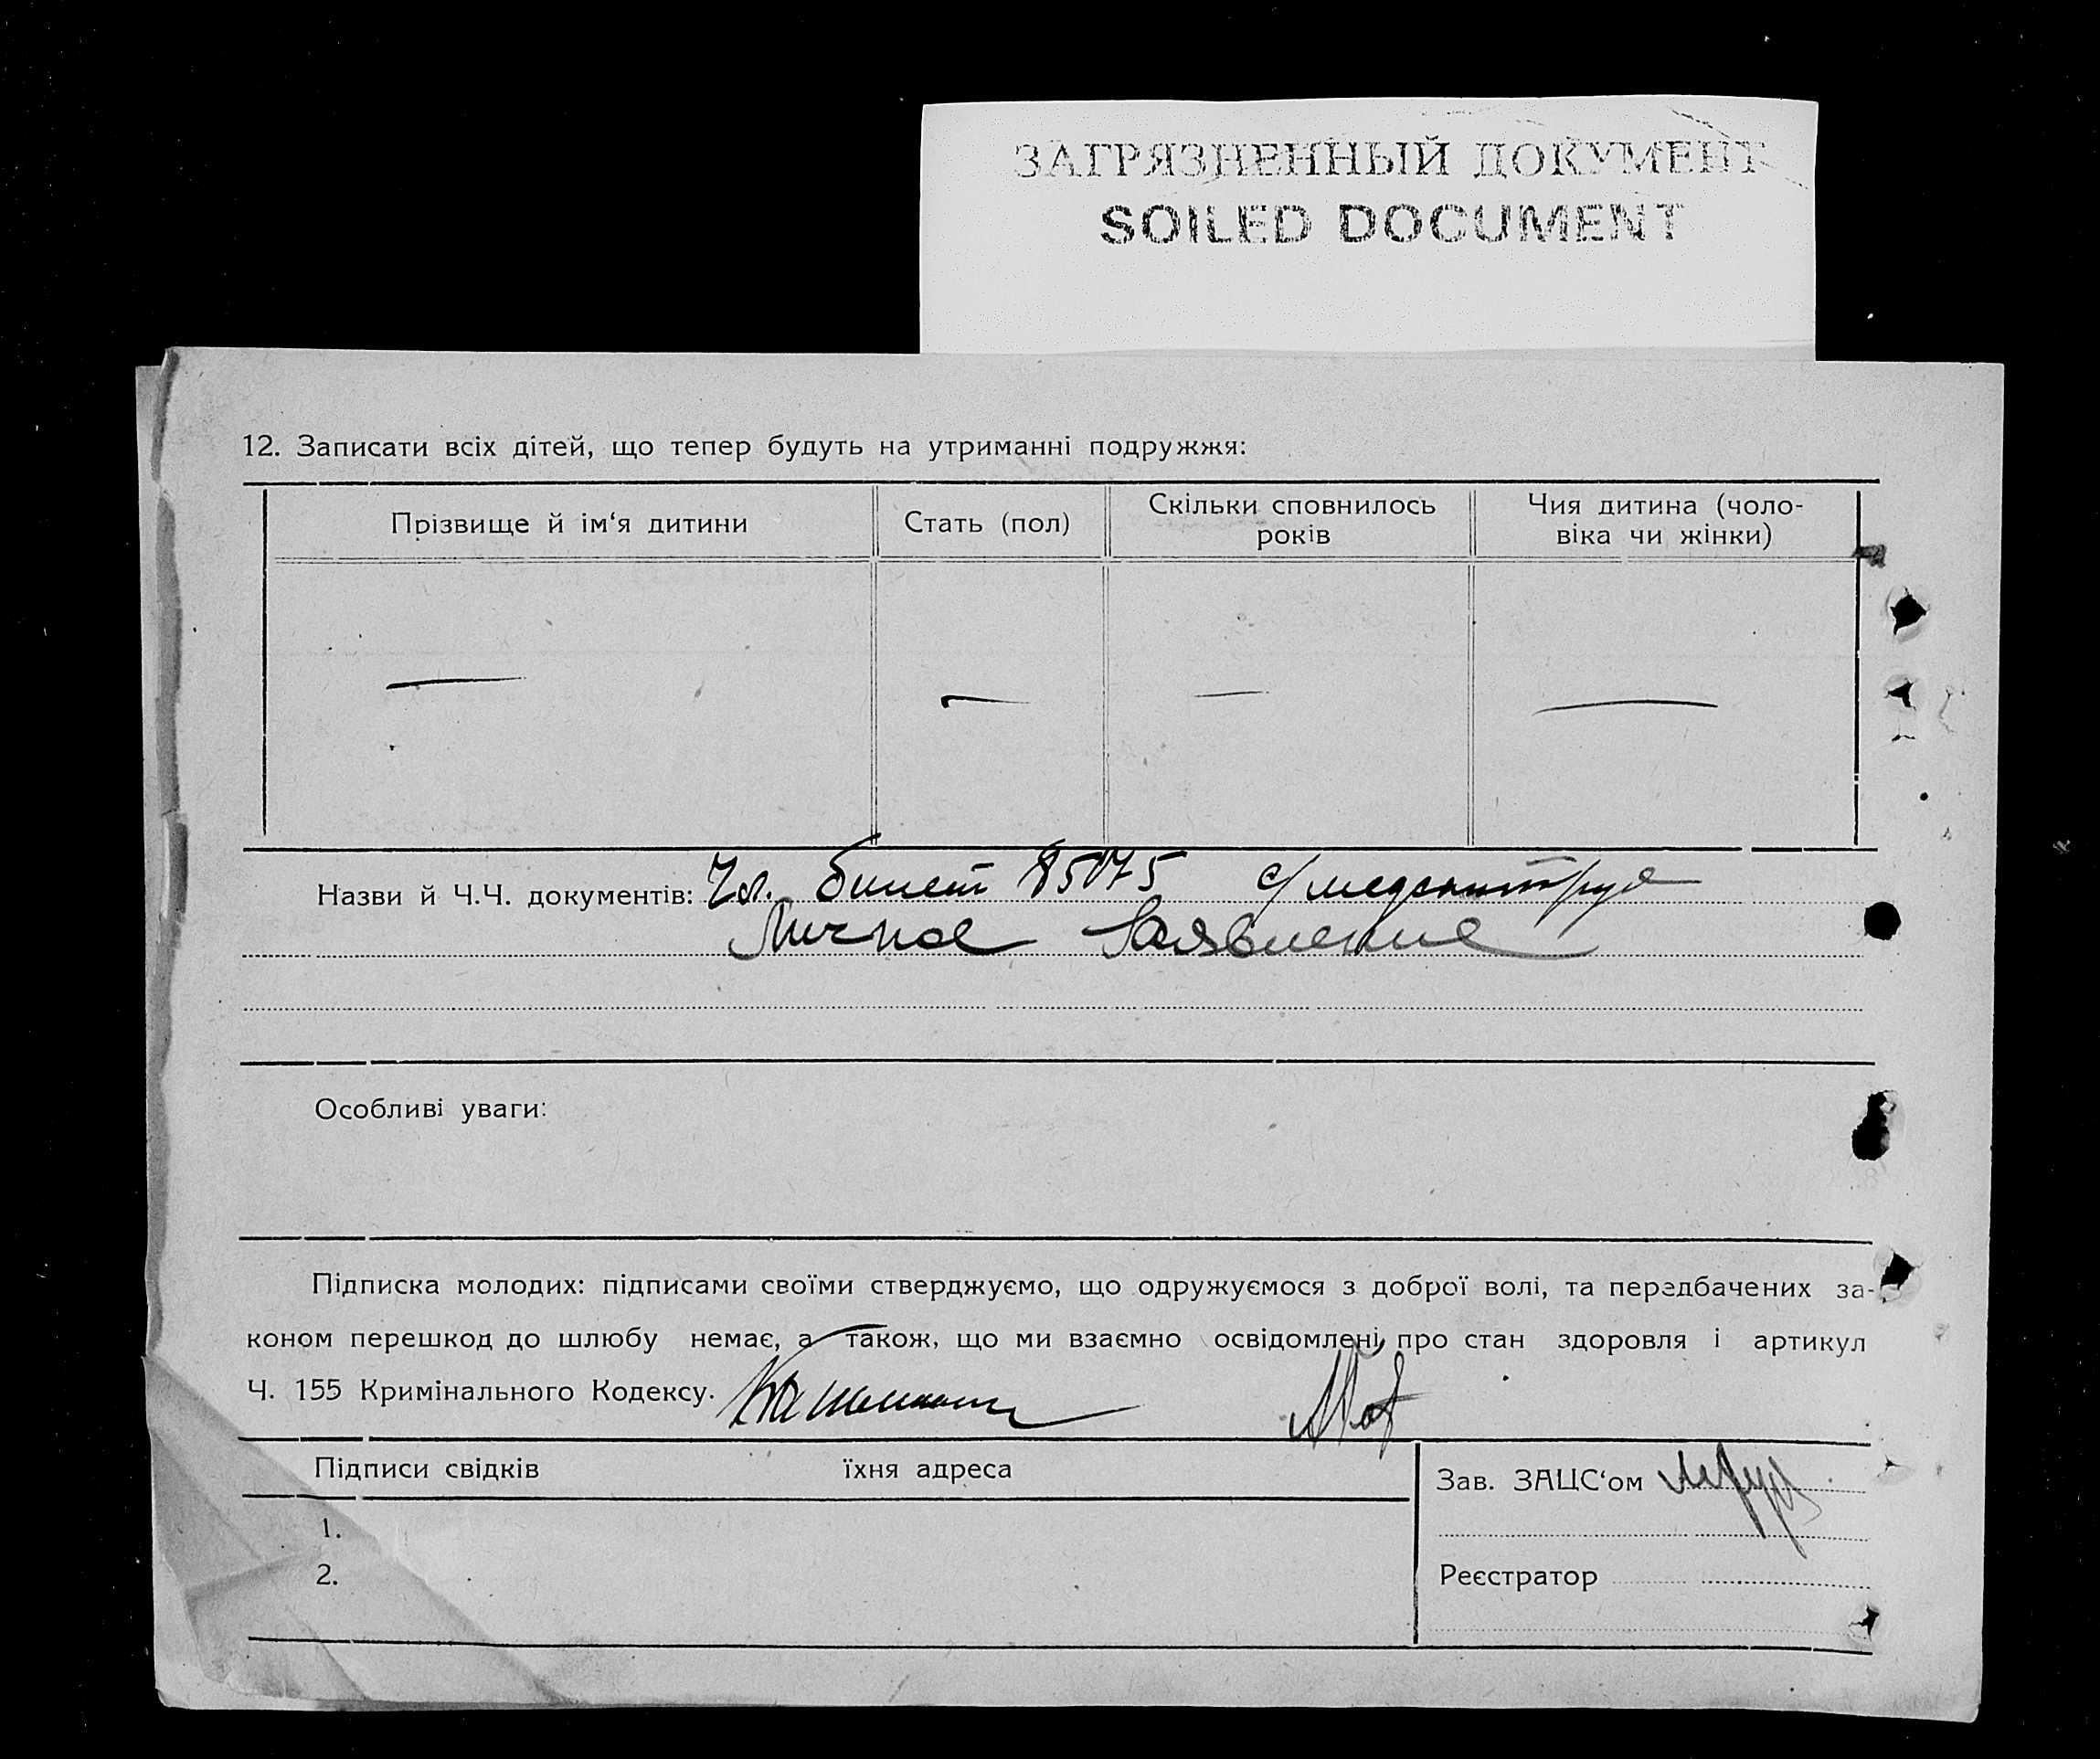 ЗАГРЯЗНЕННЫЙ ДОКУМЕНТ
SOILED DOCUMENT
12. Записати всіх дітей, що тепер будуть на утриманні подружжя:
Прізвище й ім‘я дитини
Стать (пол)
Скільки сповнилось
років
Чия дитина (чоло-
віка чи жінки)
— — — —
Назви й Ч.Ч. документів: Чл. билет 85175
Личное Заявление
Особливі уваги:
Підписка молодих: підписами своїми стверджуємо, що одружуємося з доброї волі, та передбачених за-
коном перешкод до шлюбу немає, а також, що ми взаємно освідомлені про стан здоровля і артикул
Ч. 155 Кримінального Кодексу.
Підписи свідків їхня адреса
Зав. ЗАЦС‘ом
1.
2.
Реєстратор